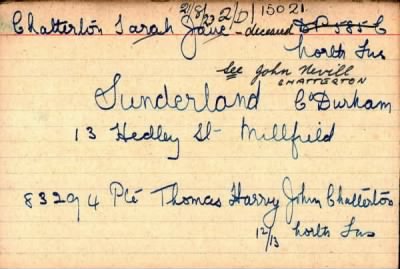 21/8/23 2/D/15021
Chatterton Sarah Jane - deceased
North Fus
See John Nevill
CHATTERTON
Sunderland Co Durham
13 Hedley St - Millfield
83294 Pte Thomas Harry John Chatterton
12/13 North Fus